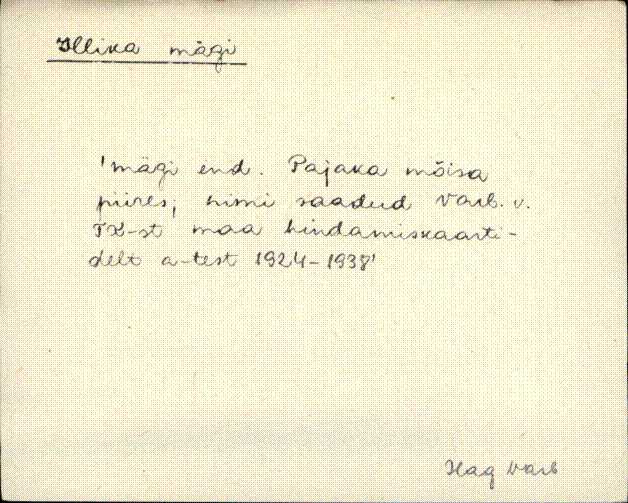 Illika mägi
'mägi end. Pajaka mõisa
piires; nimi saadud Varb. v.
TK-st maa hindamiskaarti-
delt a-test 1924-1938'
Hag Varb